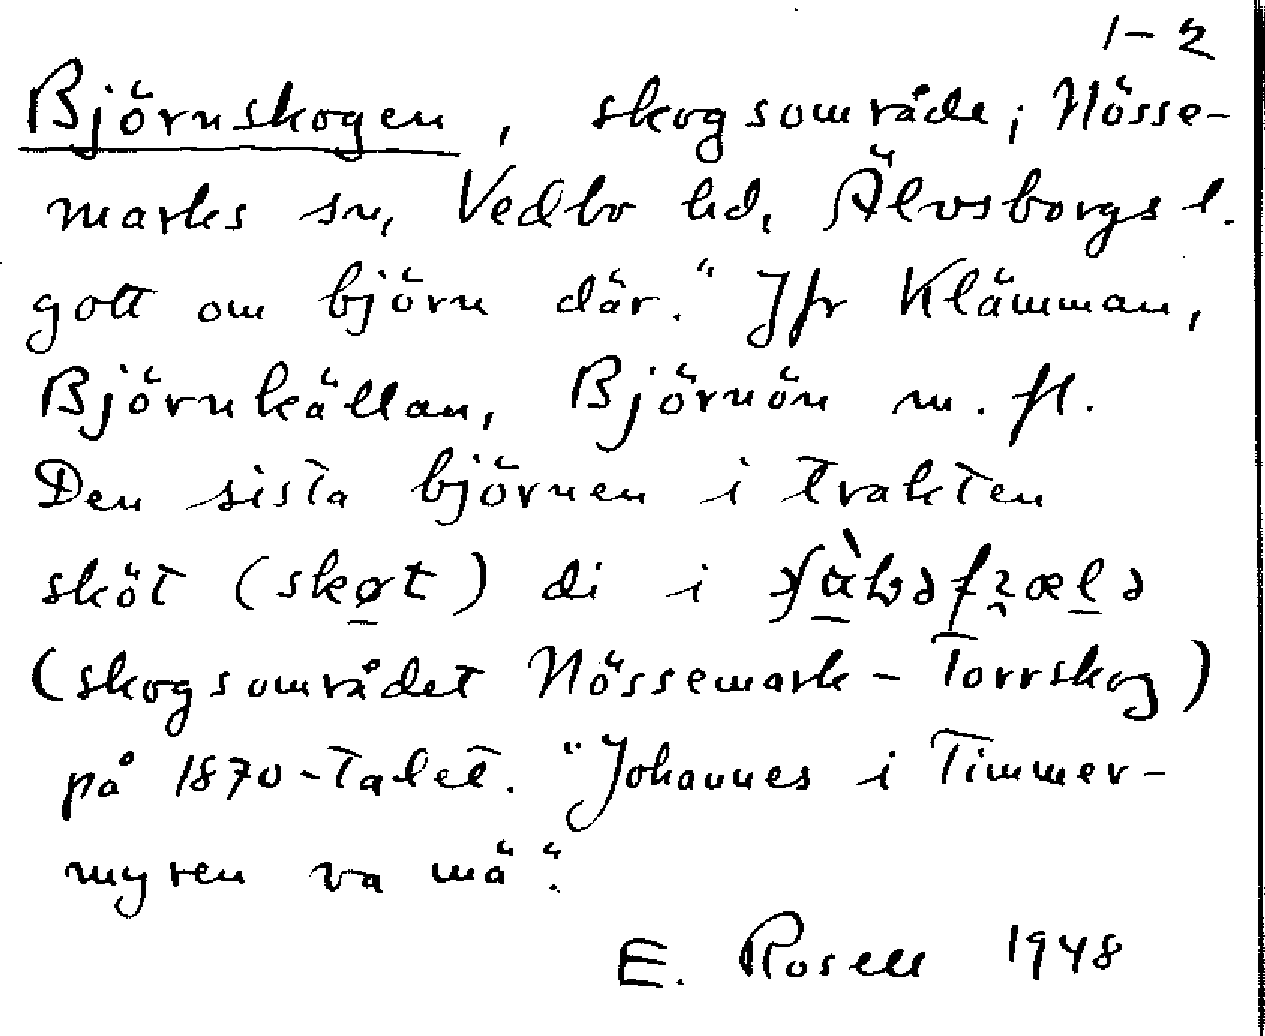 1–2
Björnskogen, skogsområde; Nösse-
marks sn, Vedbo hd, Älvsborgs l.
gott om björn där." Jfr Klämman,
Björnkällan, Björnön m. fl.
Den sista björnen i trakten
sköt (skøt) di i
(skogsområdet Nössemark – Torrskog)
på 1870-talet. "Johannes i Timmer-
myren va mä".
E. Rosell 1948